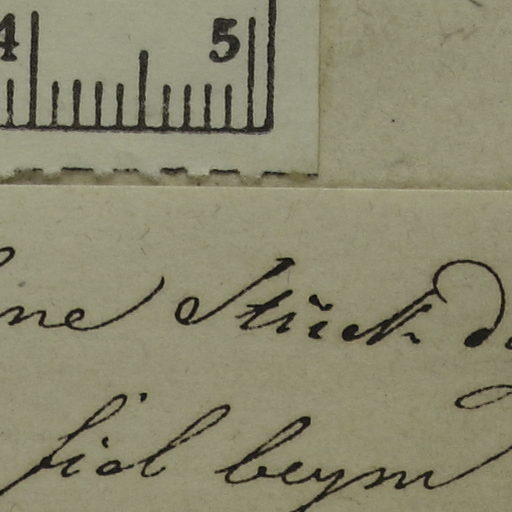 4 5
Stück
fiel beym